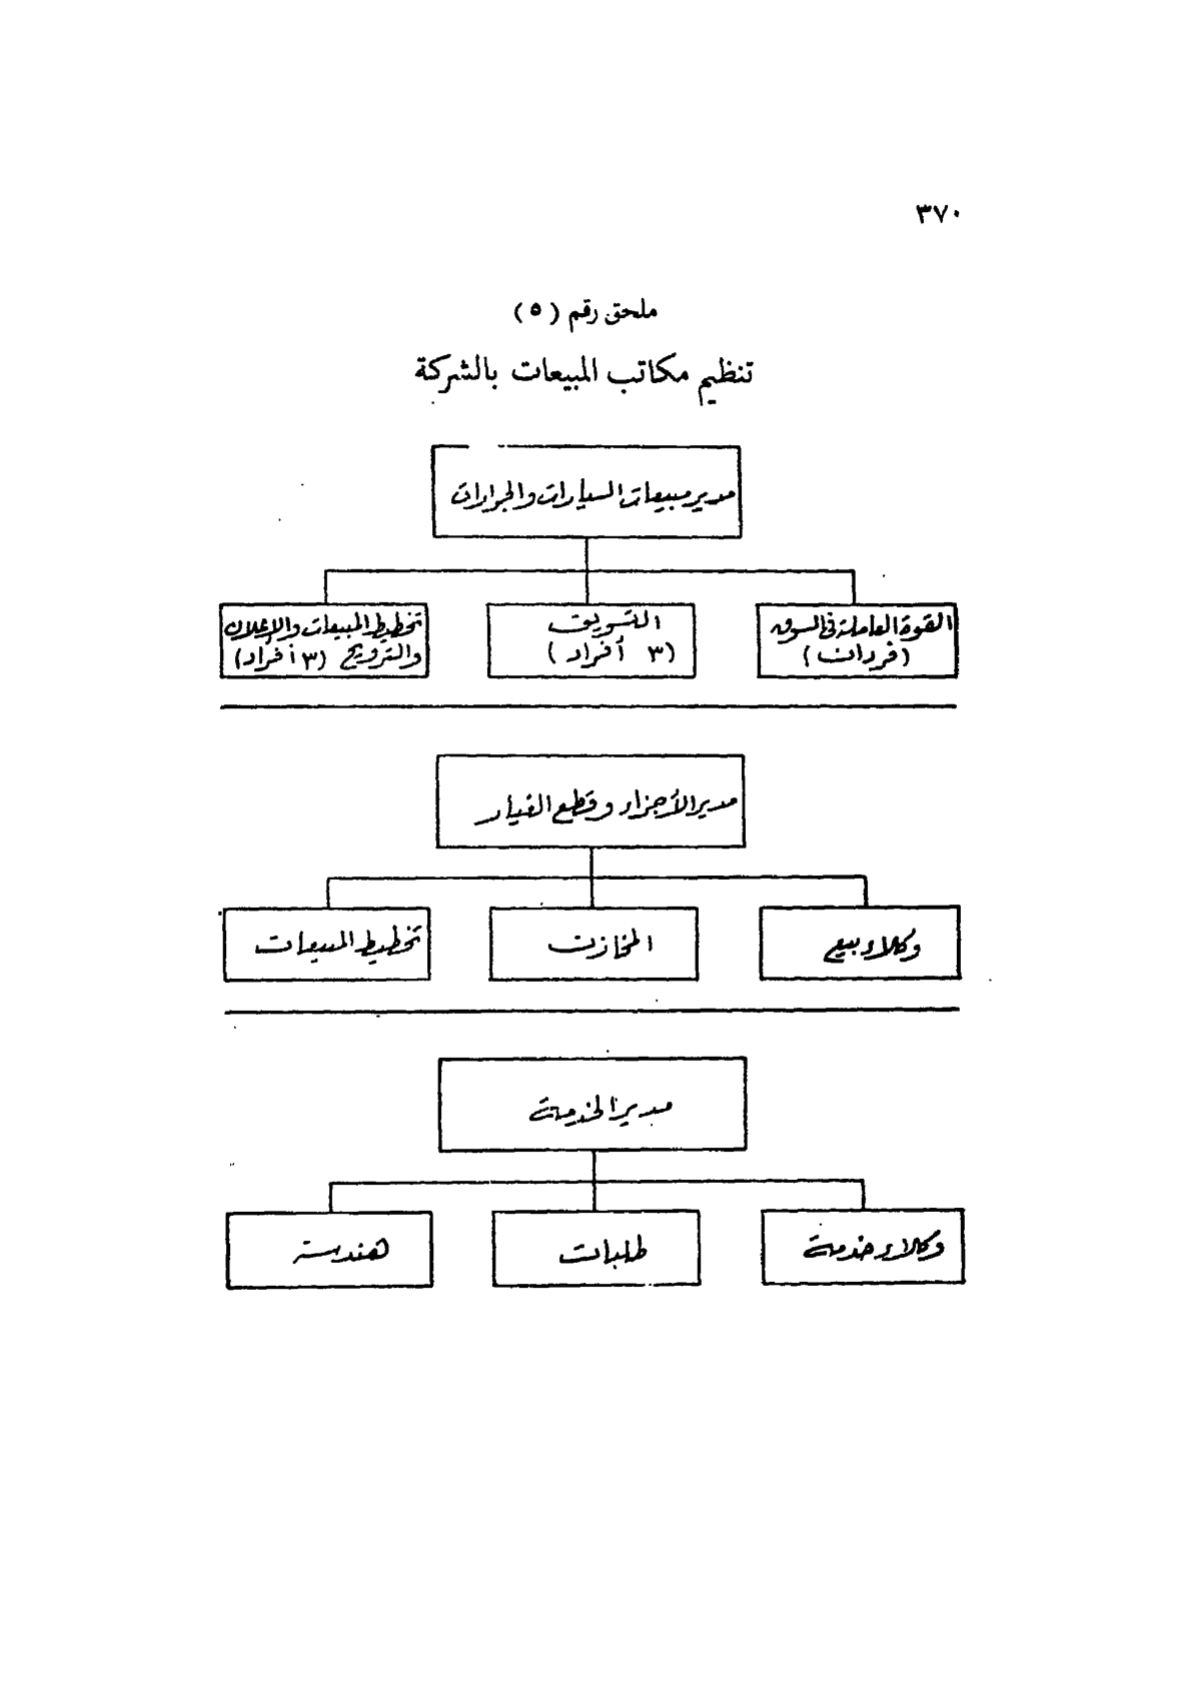 ٣٧٠
ملحق رقم ( ٥ )
تنظيم مكاتب المبيعات بالشركة
مدير مبيعات السيارات والجرارات
القوة العاملة فى السوق
( فردان )
التسويق
( ٣ أفراد )
تخطيط المبيعات والإعلان
والترويج ( ٣ أفراد )
مدير الأجزاء وقطع الغيار
وكلاء بيع
المخازن
تخطيط المبيعات
مدير الخدمة
وكلاء خدمة
طلبات
هندسة